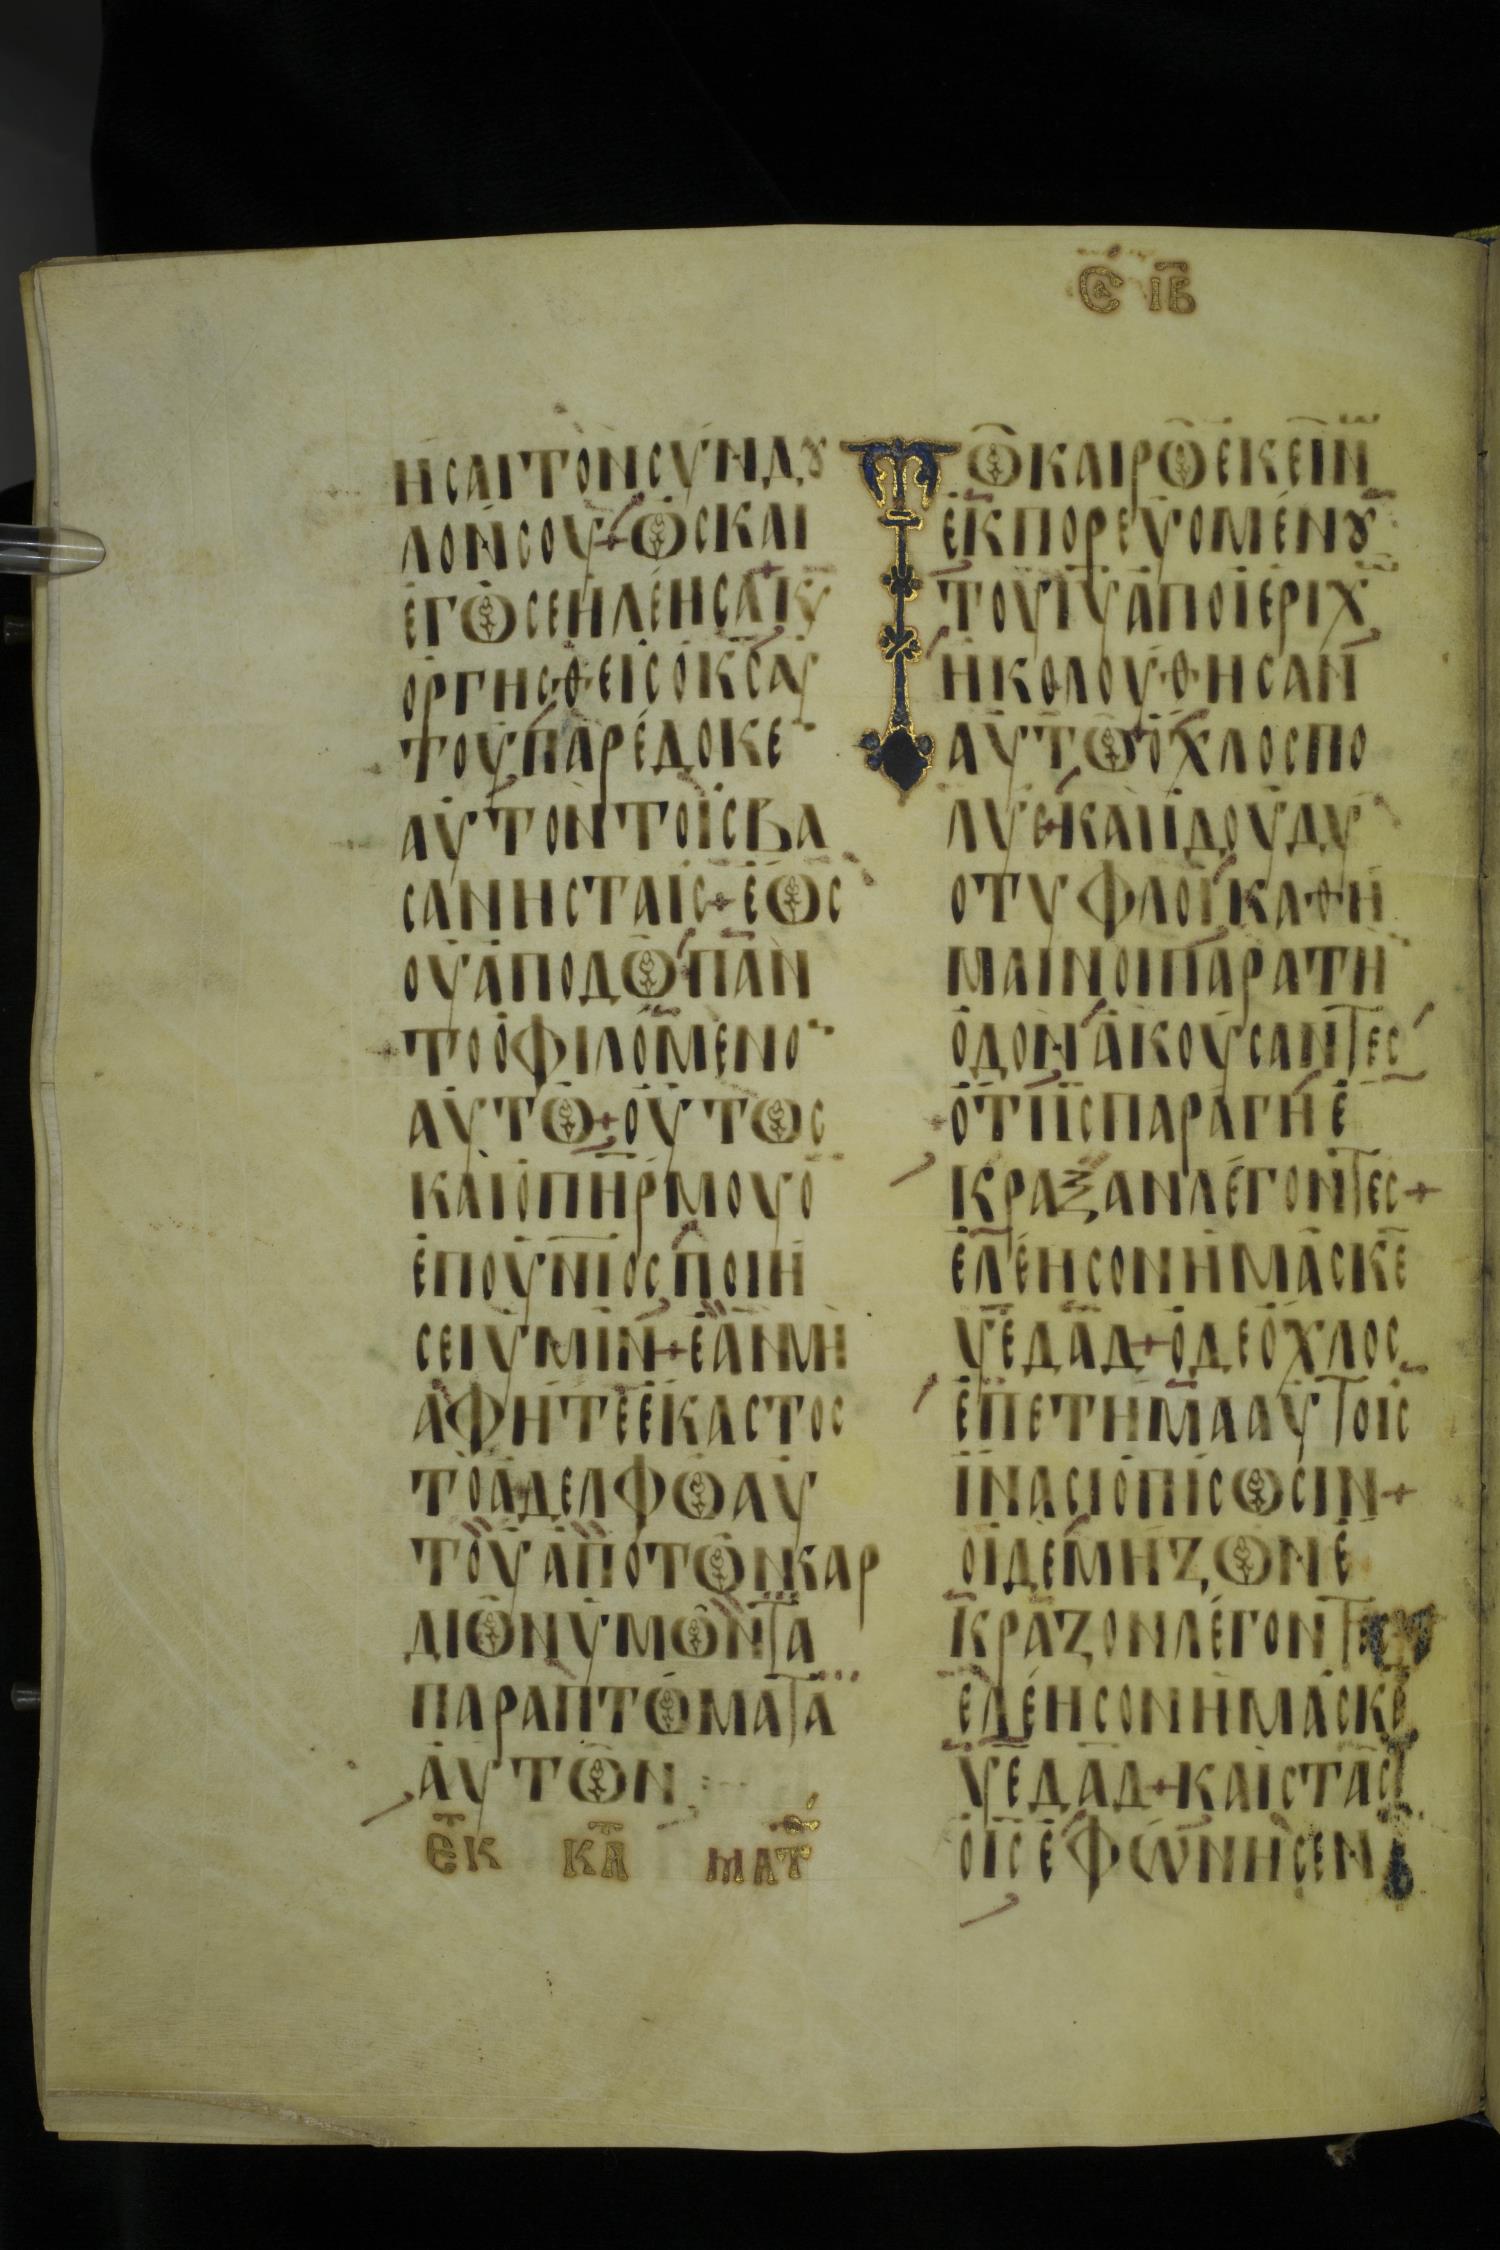 Ε ΙΒ
ΗΣΑΙ ΤΟΝ ΣΥΝΔȢ
ΛΟΝ ΣΟΥ + ΩΣ ΚΑΙ
ΕΓΩ ΣΕ ΗΛΕΗΣΑ + Κ̅Υ̅
ΟΡΓΗΣΘΕΙΣ Ο Κ̅Σ̅ ΑΥ
ΤΟΥ ΠΑΡΕΔΟΚΕ
ΑΥΤΟΝ ΤΟΙΣ ΒΑ
ΣΑΝΗΣΤΑΙΣ + ΕΩΣ
ΟΥ ΑΠΟΔΩ ΠΑΝ
ΤΟ ΟΦΙΛΟΜΕΝΟ
ΑΥΤΩ + ΟΥΤΩΣ
ΚΑΙ Ο Π̅Η̅Ρ̅ ΜΟΥ Ο
ΕΠΟΥΝΙΟΣ ΠΟΙΗ
ΣΕΙ ΥΜΙΝ + ΕΑΝ ΜΗ
ΑΦΗΤΕ ΕΚΑΣΤΟΣ
ΤΟ ΑΔΕΛΦΩ ΑΥ
ΤΟΥ ΑΠΟ ΤΩΝ ΚΑΡ
ΔΙΩΝ ΥΜΩΝ ΤΑ
ΠΑΡΑΠΤΩΜΑΤΑ
ΑΥΤΩΝ :
ΕΚ ΚΛ ΜΑΤ
ΤΩ ΚΑΙΡΩ ΕΚΕΙΝ
ΕΚΠΟΡΕΥΟΜΕΝȢ
ΤΟΥ Ι̅Υ̅ ΑΠΟ ΙΕΡΙΧ
ΗΚΟΛΟΥΘΗΣΑΝ
ΑΥΤΩ ΟΧΛΟΣ ΠΟ
ΛΥΣ + ΚΑΙ ΙΔΟΥ ΔΥ
Ο ΤΥΦΛΟΙ ΚΑΘΗ
ΜΑΙΝΟΙ ΠΑΡΑ ΤΗ
ΟΔΟΝ ΑΚΟΥΣΑΝΤΕΣ
ΟΤΙ Ι̅Σ̅ ΠΑΡΑΓΗ Ε
ΚΡΑΞΑΝ ΛΕΓΟΝΤΕΣ +
ΕΛΕΗΣΟΝ ΗΜΑΣ Κ̅Ε̅
Υ̅Ε̅ Δ̅Α̅Δ̅ + Ο ΔΕ ΟΧΛΟΣ
ΕΠΕΤΗΜΑ ΑΥΤΟΙΣ
ΙΝΑ ΣΙΟΠΙΣΩΣΙΝ +
ΟΙ ΔΕ ΜΗΖΩΝ Ε
ΚΡΑΖΟΝ ΛΕΓΟΝΤΕΣ
ΕΛΕΗΣΟΝ ΗΜΑΣ Κ̅Ε̅
Υ̅Ε̅ Δ̅Α̅Δ̅ + ΚΑΙ ΣΤΑΣ
Ο Ι̅Σ̅ ΕΦΩΝΗΣΕΝ